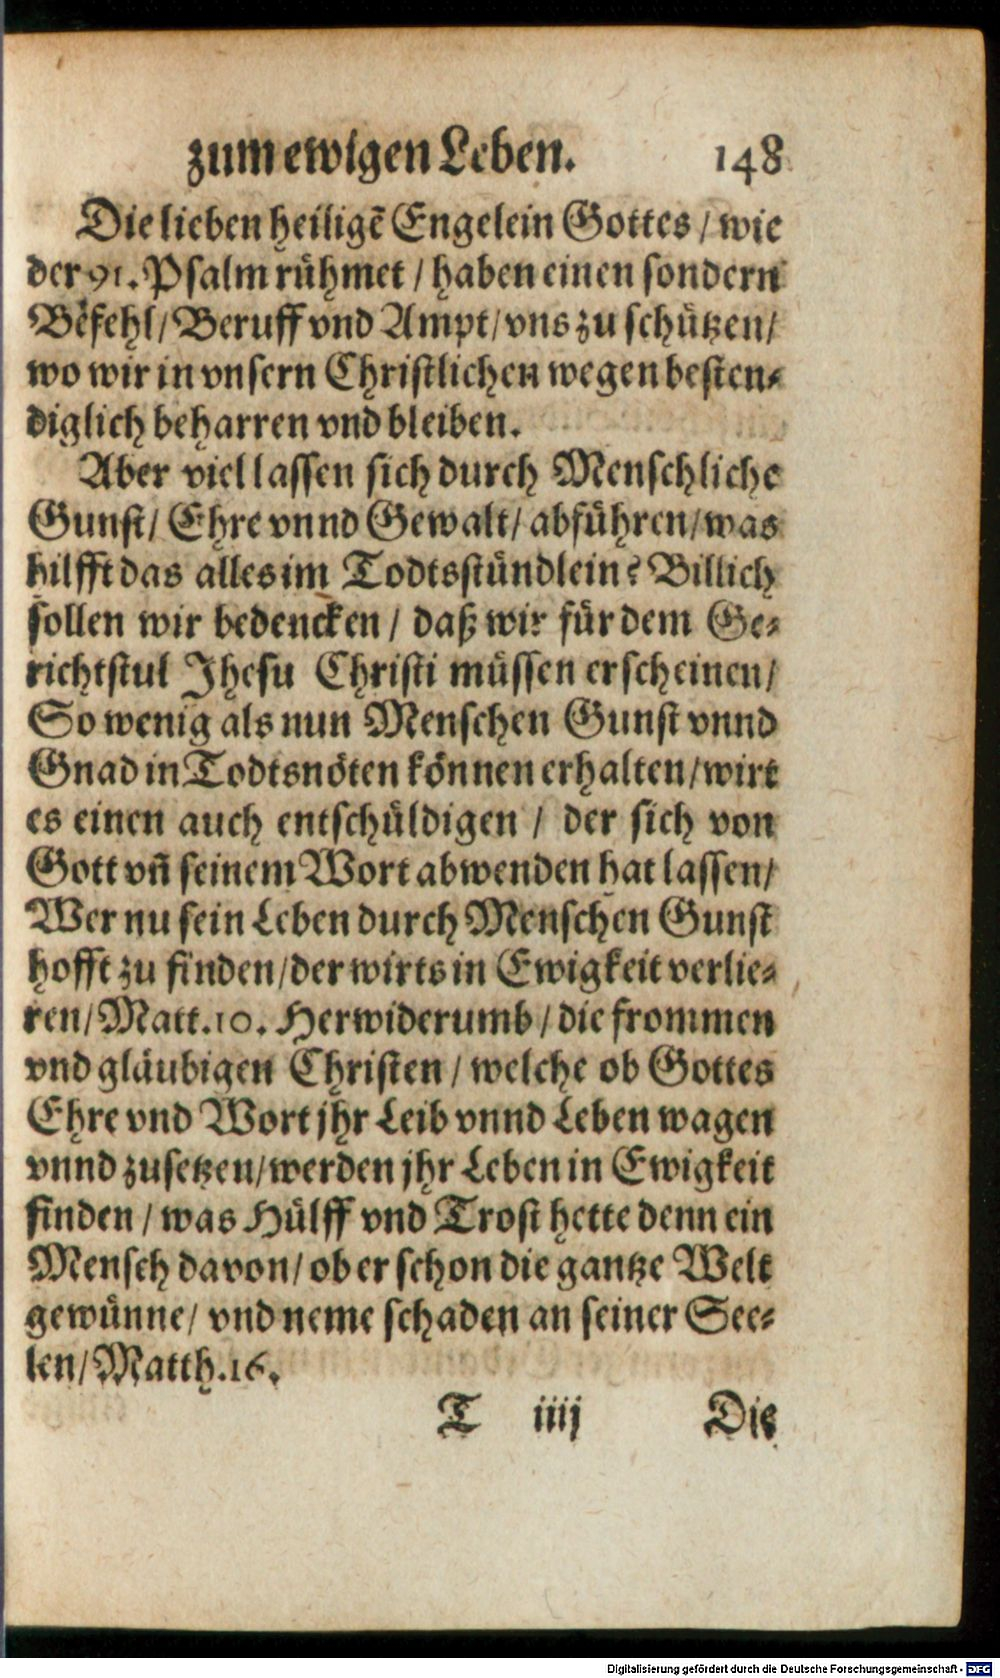 zum ewigen Leben. 148
Die lieben heiligẽ Engelein Gottes / wie
der 91. Psalm rühmet / haben einen sondern
Befehl / Beruff vnd Ampt / vns zu schützen /
wo wir in vnsern Christlichen wegen besten-
diglich beharren vnd bleiben.
Aber viel lassen sich durch Menschliche
Gunst / Ehre vnnd Gewalt / abführen / was
hilfft das alles im Todtsstündlein? Billich
sollen wir bedencken / daß wir für dem Ge-
richtstul Jhesu Christi müssen erscheinen /
So wenig als nun Menschen Gunst vnnd
Gnad in Todtsnöten können erhalten / wirt
es einen auch entschüldigen / der sich von
Gott vñ seinem Wort abwenden hat lassen /
Wer nu sein Leben durch Menschen Gunst
hofft zu finden / der wirts in Ewigkeit verlie-
ren / Matt. 10. Herwiderumb / die frommen
vnd gläubigen Christen / welche ob Gottes
Ehre vnd Wort jhr Leib vnnd Leben wagen
vnnd zusetzen / werden jhr Leben in Ewigkeit
finden / was Hülff vnd Trost hette denn ein
Mensch davon / ob er schon die gantze Welt
gewünne / vnd neme schaden an seiner See-
len / Matth. 16.
T iiij Die
Digitalisierung gefördert durch die Deutsche Forschungsgemeinschaft - DFG